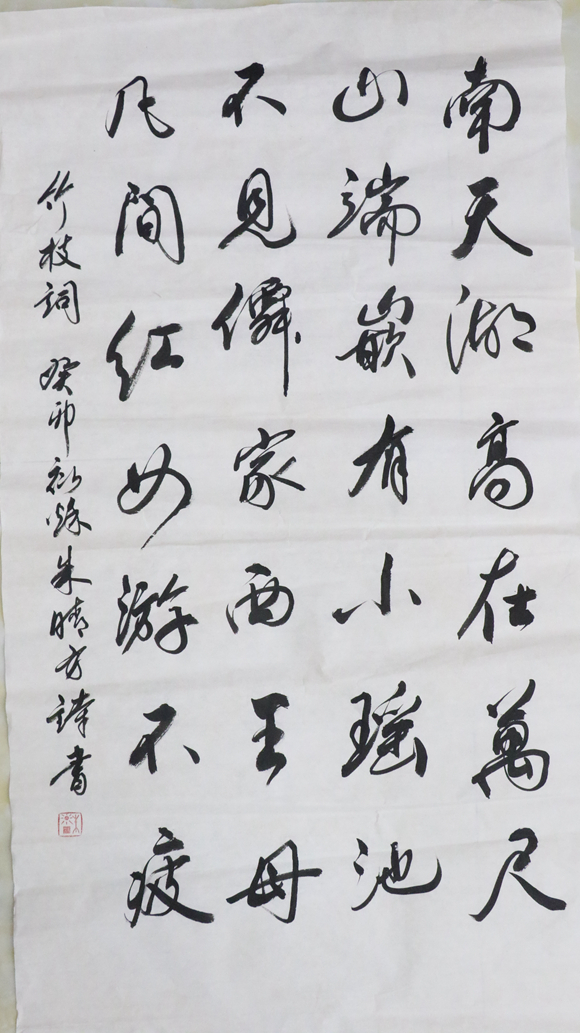 南天湖高在萬尺
山端嵌有小瑶池
不見僊家西王母
凡間红女游不疲
竹枝詞 癸卯初秋朱晴方詩書